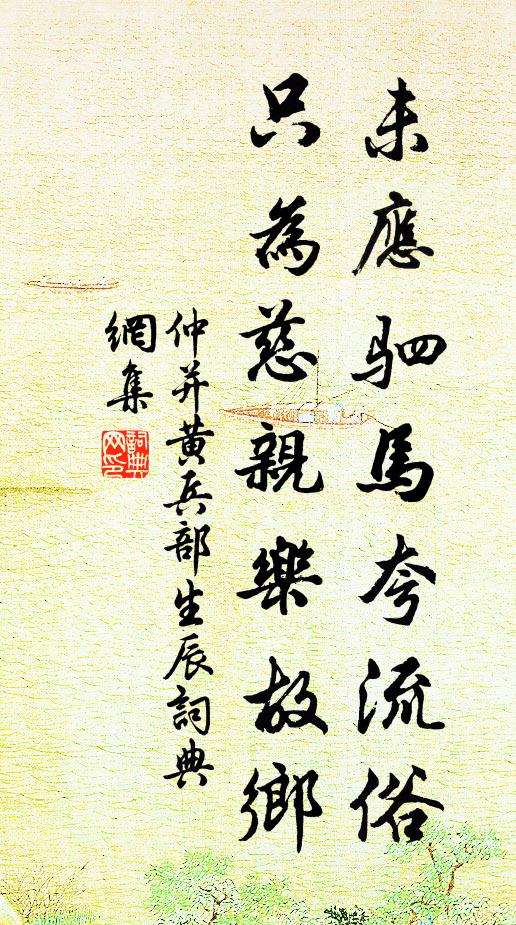 未應駟馬夸流俗
只為慈親樂故鄉
仲并黄兵部生辰詞典
網集
詞典網印